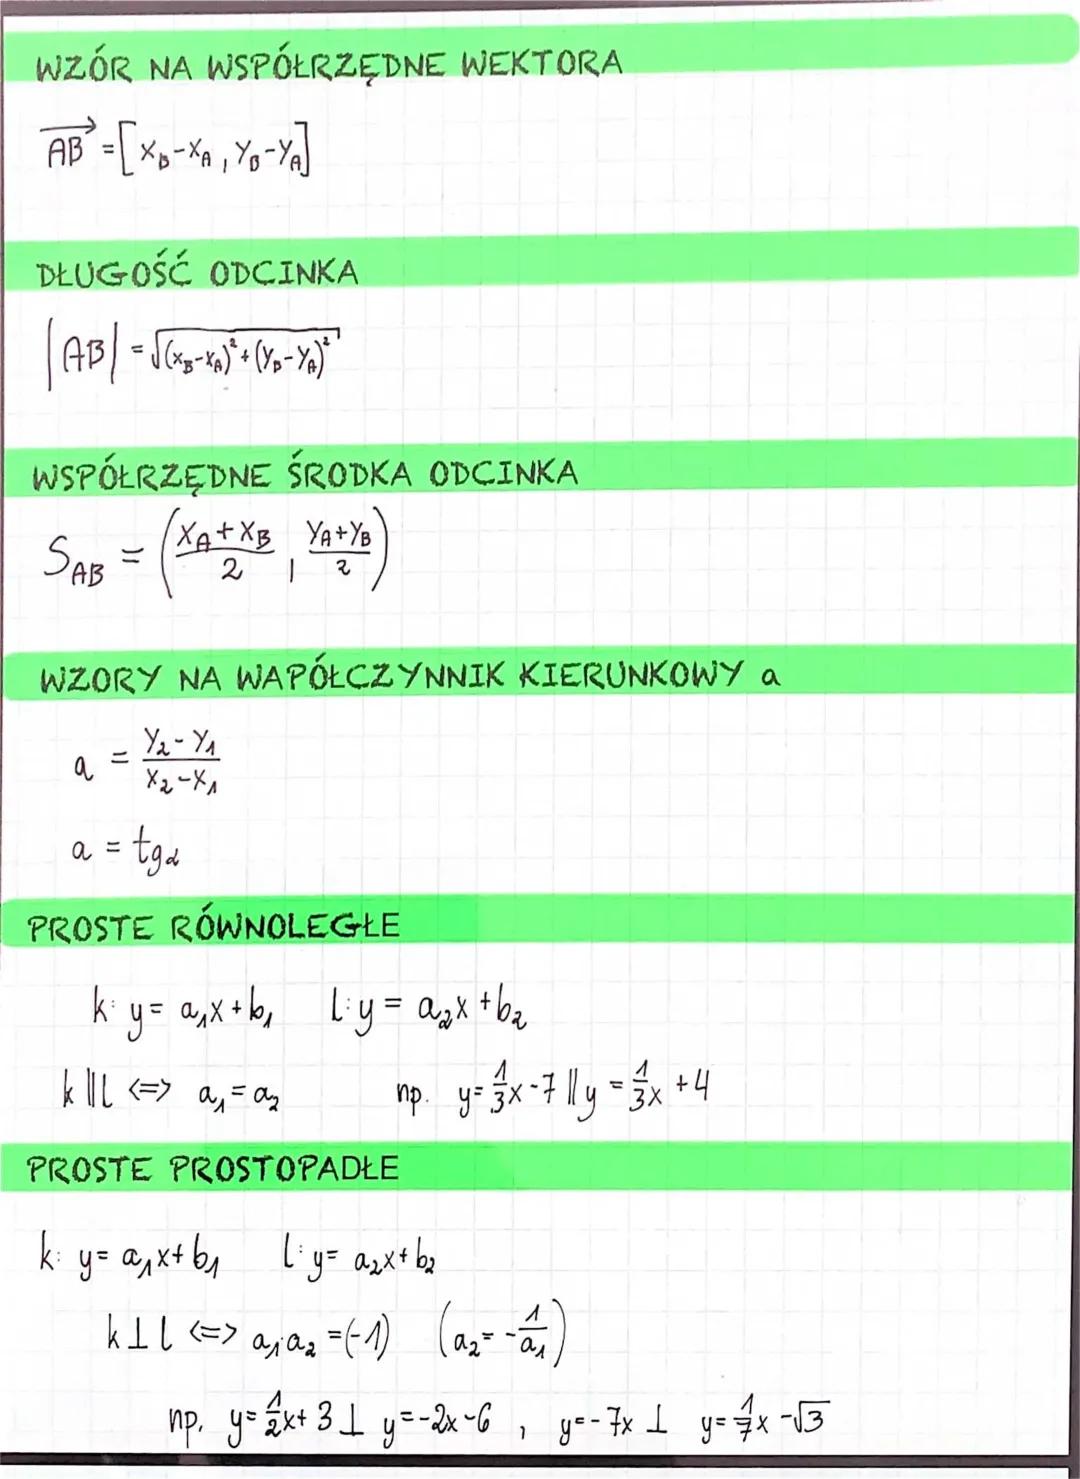 WZÓR NA WSPÓŁRZĘDNE WEKTORA
$\overrightarrow{AB} = [x_B - x_A, y_B - y_A]$
DŁUGOŚĆ ODCINKA
$|AB| = \sqrt{(x_B - x_A)^2 + (y_B - y_A)^2}$
WSPÓŁRZĘDNE ŚRODKA ODCINKA
$S_{AB} = \left(\frac{x_A + x_B}{2}, \frac{y_A + y_B}{2}\right)$
WZORY NA WAPÓŁCZYNNIK KIERUNKOWY a
$a = \frac{y_2 - y_1}{x_2 - x_1}$
$a = tg\alpha$
PROSTE RÓWNOLEGŁE
k: $y = a_1x + b_1$ l: $y = a_2x + b_2$
$k \parallel l \Leftrightarrow a_1 = a_2$ np. $y = \frac{1}{3}x - 7 \parallel y = \frac{1}{3}x + 4$
PROSTE PROSTOPADŁE
k: $y = a_1x + b_1$ l: $y = a_2x + b_2$
$k \perp l \Leftrightarrow a_1 \cdot a_2 = (-1)$ $\left(a_2 = -\frac{1}{a_1}\right)$
np. $y = \frac{1}{2}x + 3 \perp y = -2x - 6$, $y = -7x \perp y = \frac{1}{7}x - \sqrt{3}$